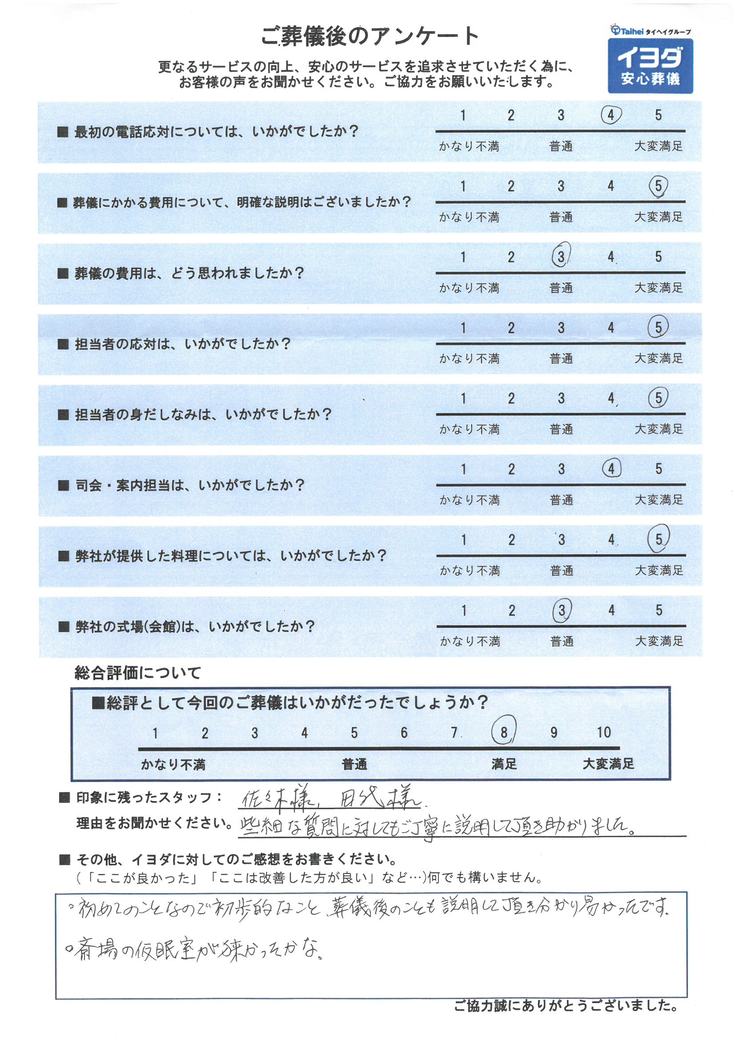 ご葬儀後のアンケート
Taihei タイヘイグループ
イヨダ
安心葬儀
更なるサービスの向上、安心のサービスを追求させていただく為に、
お客様の声をお聞かせください。ご協力をお願いいたします。
■ 最初の電話応対については、いかがでしたか？
1 2 3 4 5
かなり不満 普通 大変満足
■ 葬儀にかかる費用について、明確な説明はございましたか？
1 2 3 4 5
かなり不満 普通 大変満足
■ 葬儀の費用は、どう思われましたか？
1 2 3 4 5
かなり不満 普通 大変満足
■ 担当者の応対は、いかがでしたか？
1 2 3 4 5
かなり不満 普通 大変満足
■ 担当者の身だしなみは、いかがでしたか？
1 2 3 4 5
かなり不満 普通 大変満足
■ 司会・案内担当は、いかがでしたか？
1 2 3 4 5
かなり不満 普通 大変満足
■ 弊社が提供した料理については、いかがでしたか？
1 2 3 4 5
かなり不満 普通 大変満足
■ 弊社の式場(会館)は、いかがでしたか？
1 2 3 4 5
かなり不満 普通 大変満足
総合評価について
■総評として今回のご葬儀はいかがだったでしょうか？
1 2 3 4 5 6 7 8 9 10
かなり不満 普通 満足 大変満足
■ 印象に残ったスタッフ： 佐々木様, 田代様
理由をお聞かせください。些細な質問に対してもご丁寧に説明して頂き助かりました。
■ その他、イヨダに対してのご感想をお書きください。
(「ここが良かった」「ここは改善した方が良い」など…)何でも構いません。
○初めてのことなので初歩的なこと、葬儀後のことも説明して頂き分かり易かったです。
○斎場の仮眠室が狭かったかな。
ご協力誠にありがとうございました。